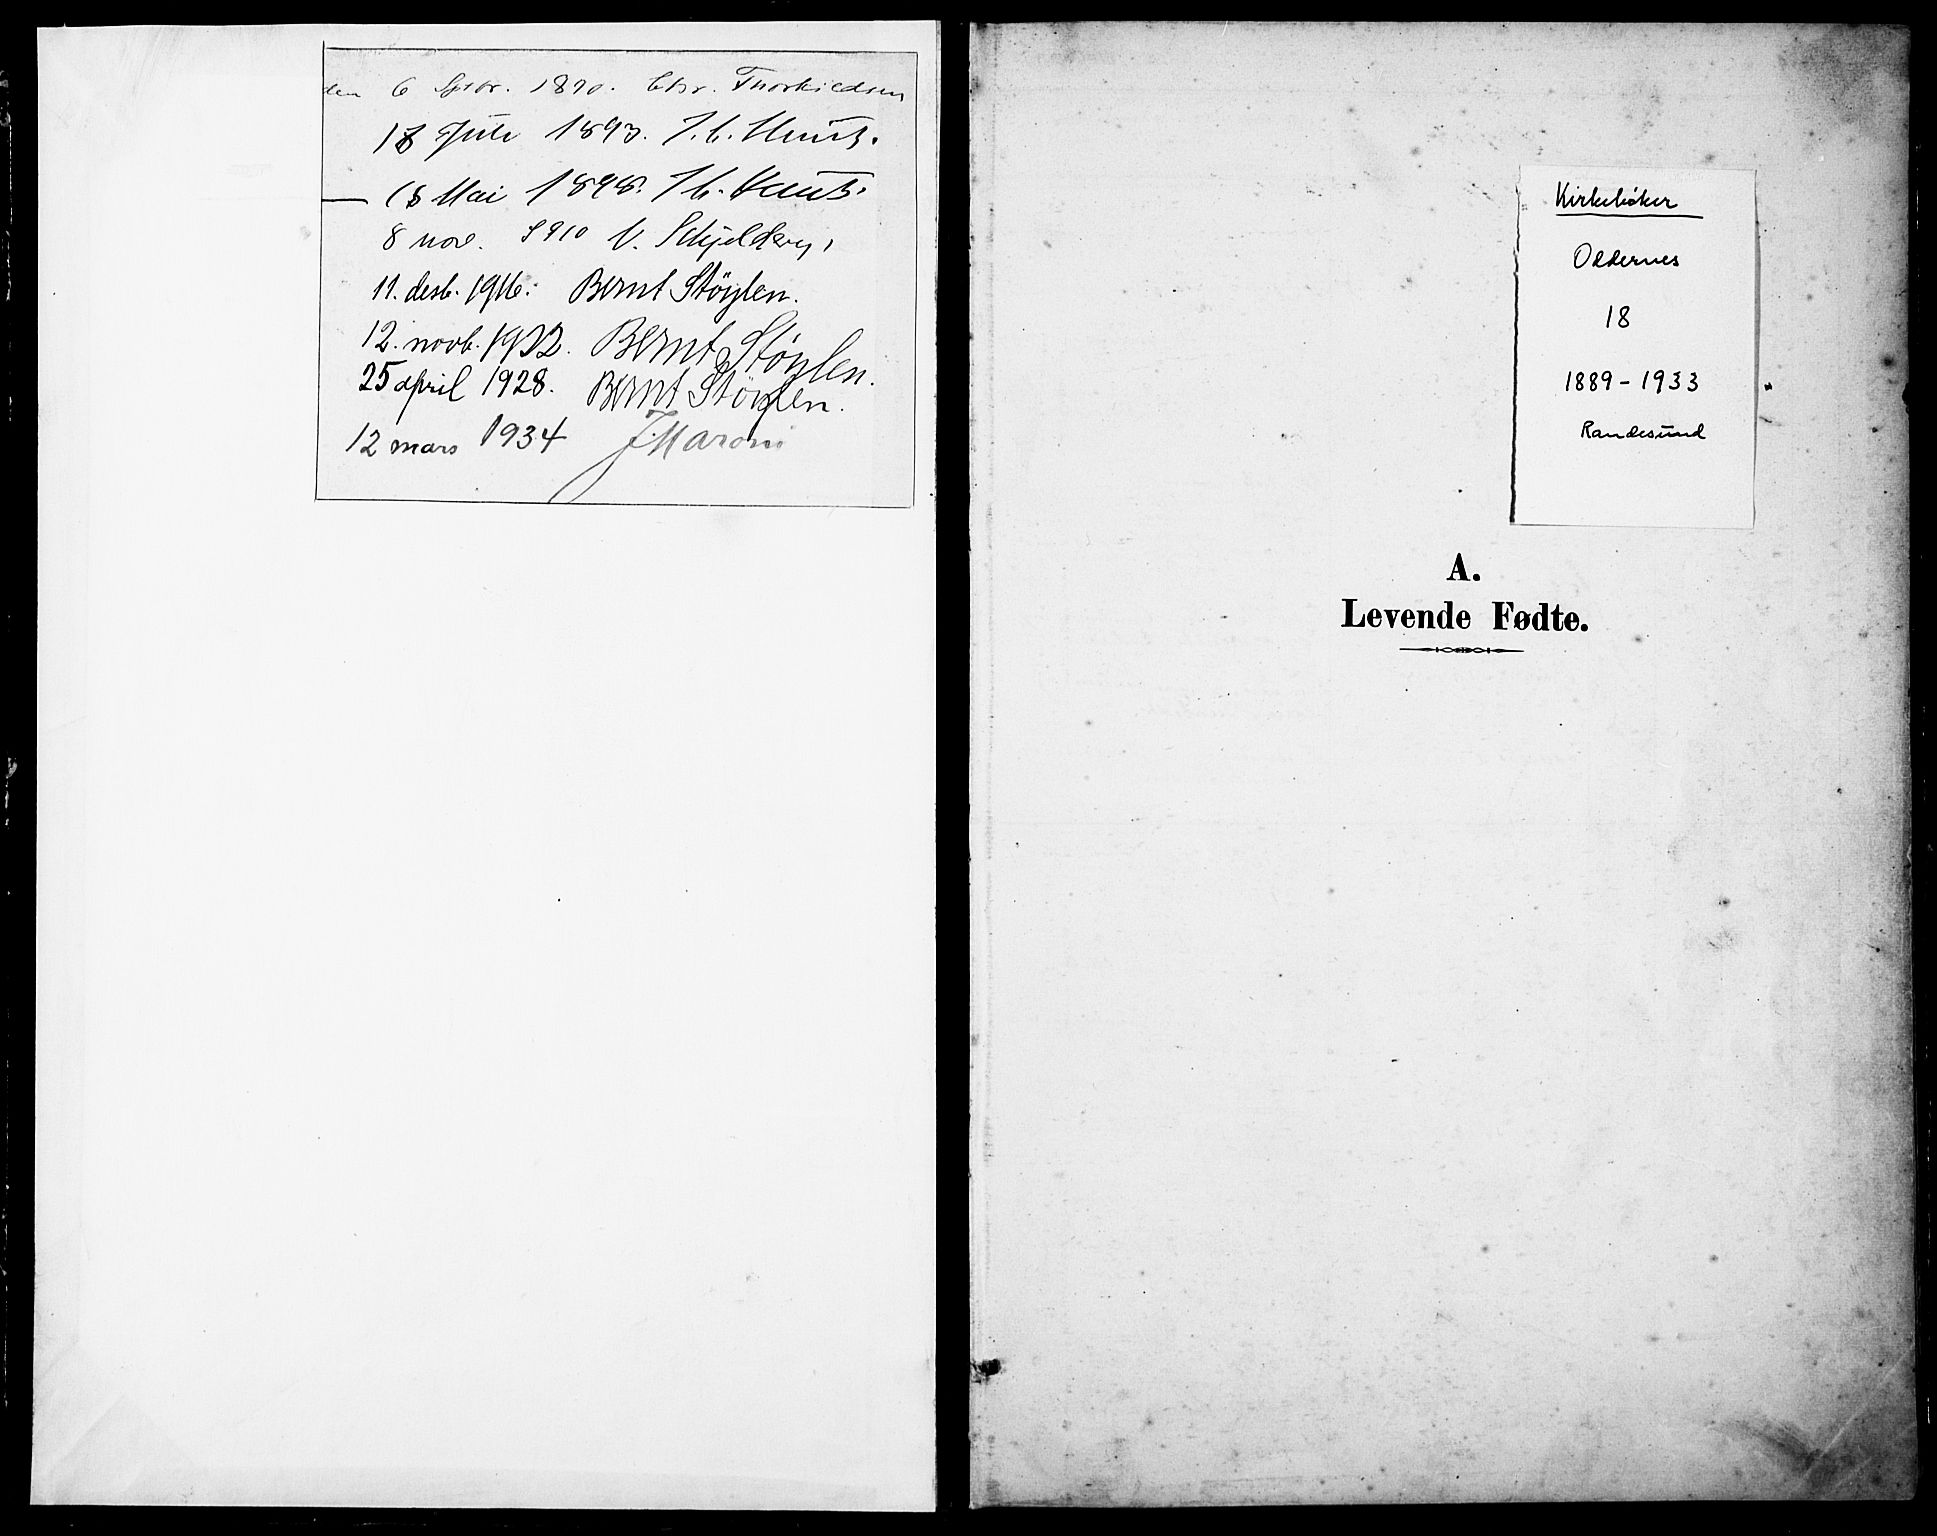 den 6 Septbr. 1890. Chr. Thorkildsen
18 Juli 1893. J. C.
— 18 Mai 1898. J. C.
8 nov. 1910 V. Schjelderup,
11. desb. 1916: Bernt Støylen.
12. novb. 1922. Bernt Støylen.
25 april 1928. Bernt Støylen.
12 mars 1934 J. Maroni
Kirkebøker
Oddernes
18
1889 - 1933
Randesund
A.
Levende Fødte.